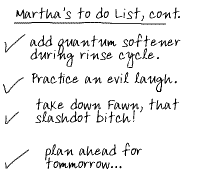 Martha's to do List, cont.
add quantum softener
during rinse cycle.
Practice an evil laugh.
take down Fawn, that
slashdot bitch!
plan ahead for
tommorrow...